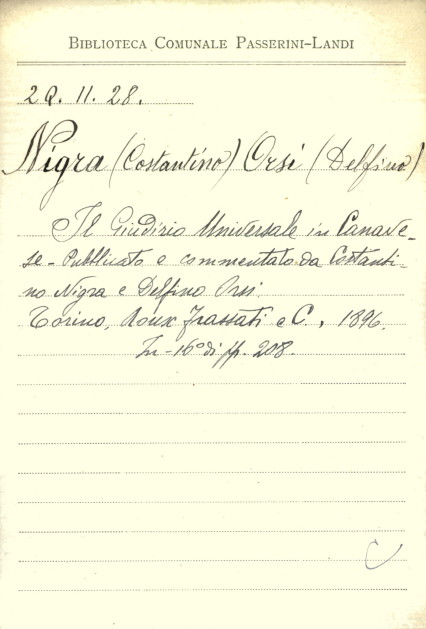 BIBLIOTECA COMUNALE PASSERINI-LANDI
2Q. 11. 28.
Nigra (Costantino) Orsi (Delfino)
Il Giudizio Universale in Canave-
se - Pubblicato e commentato da Costanti-
no Nigra e Delfino Orsi.
Torino, Roux Frassati e C., 1896.
In-16° di pp. 208.